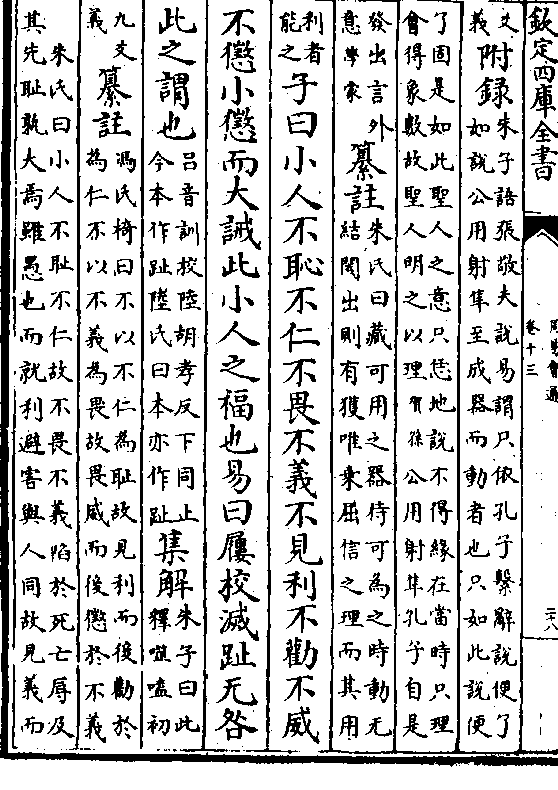 欽定四庫全書
卷十三
文附録朱子語張敬夫説易謂只依孔子繫辭説便了
義如説公用射隼至成器而動者也只如此説便
了固是如此聖人之意只恁地説不得緣在當時只理
會得象數故聖人明之以理賀孫公用射隼孔子自是
發出言外
意學蒙
纂註
朱氏曰藏可用之器待可為之時動无
結閡出則有獲唯來屈信之理而其用
利者
能之
子曰小人不恥不仁不畏不義不見利不勸不威
不懲小懲而大誡此小人之福也易曰屨校滅趾无咎
此之謂也
吕音訓校陸胡孝反下同止
今本作趾陸氏曰本亦作趾
集解
朱子曰此
釋噬嗑初
九爻
義
纂註
馮氏椅曰不以不仁為恥故見利而後勸於
為仁不以不義為畏故畏威而後懲於不義
朱氏曰小人不恥不仁故不畏不義陷於死亡辱及
其先恥孰大焉雖愚也而就利避害與人同故見義而